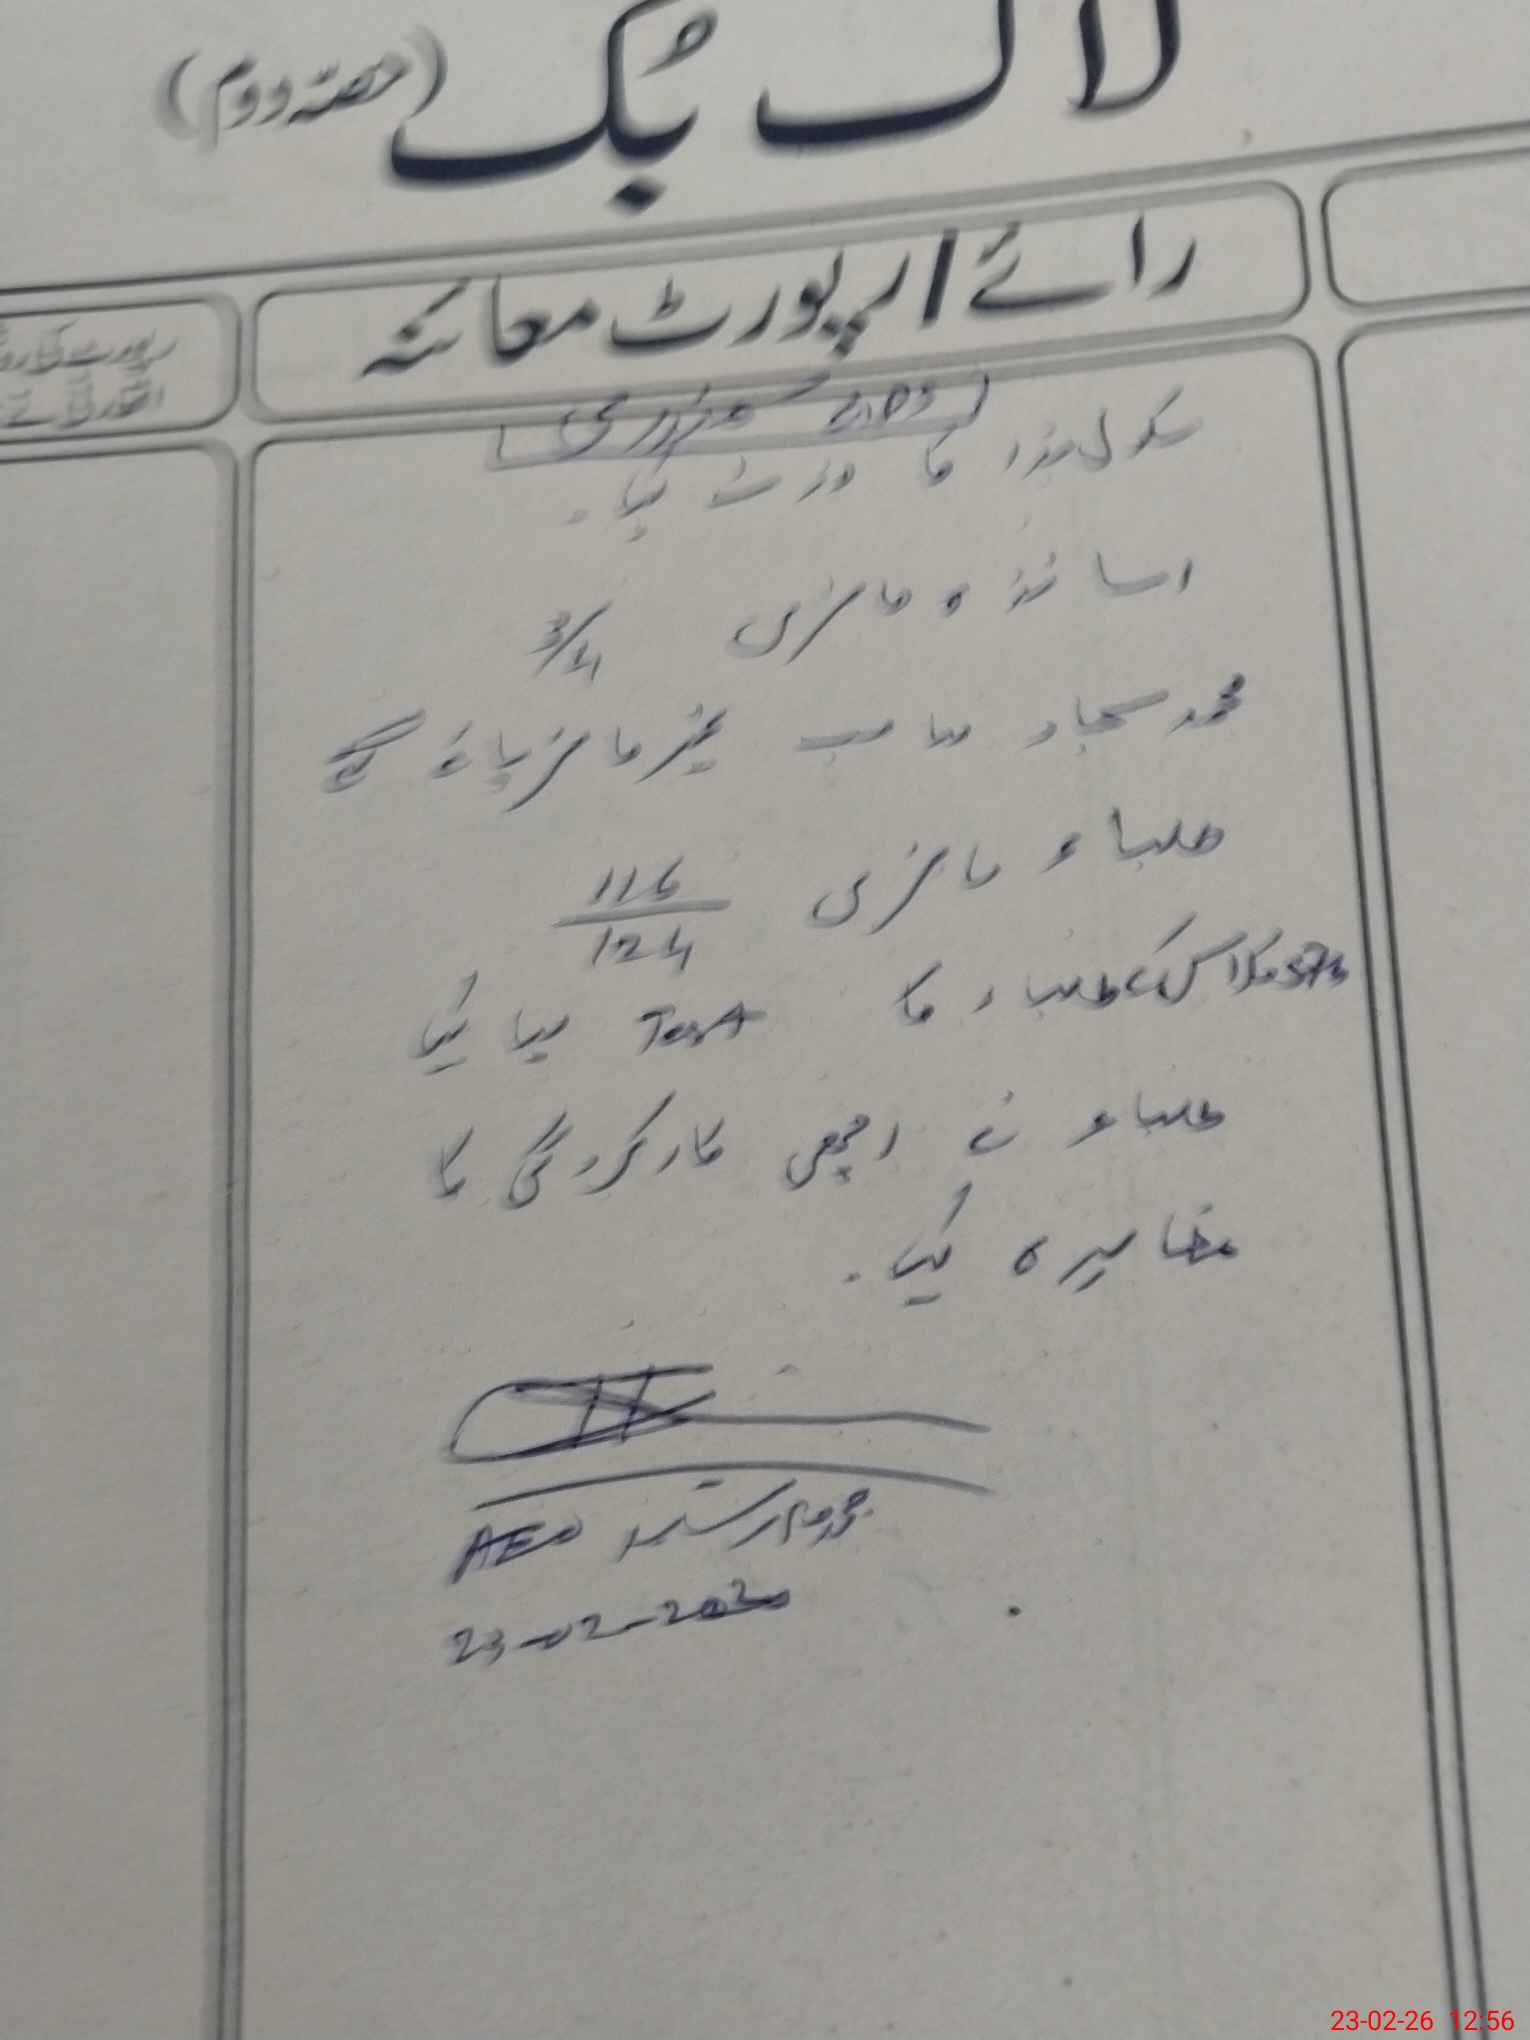 لاگ بُک (حصّہ دوم)
رائے / رپورٹ معائنہ
سکول ہذا کا وزٹ کیا۔
اساتذہ حاضری 3/4
محمد سجاد صاحب غیر حاضر پائے گئے
طلباء حاضری 116/124
5th کلاس کے طلباء کا Test لیا گیا
طلباء نے اچھی کارکردگی کا
مظاہرہ کیا۔
AEO
23-02-26 12:56